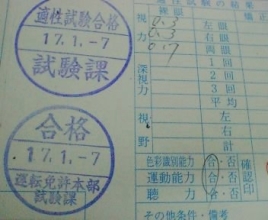 適性試験合格
17.1.-7
試験課
合格
17.1.-7
運転免許本部
試験課
適性試験の結果
視力
0.3
左眼
0.3
右眼
0.7
両眼
深視力
1回
2回
3回
平均
視野
左
右
計
色彩識別能力 合・否
運動能力 合・否
聴力 合・否
確認印
その他条件・備考